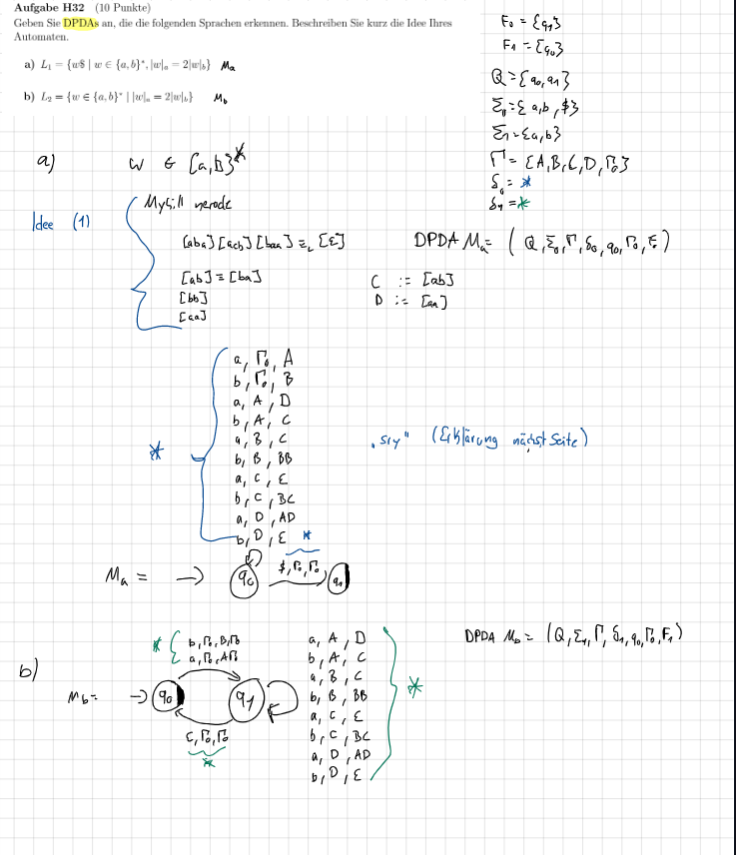 Aufgabe H32 (10 Punkte)
Geben Sie DPDAs an, die die folgenden Sprachen erkennen. Beschreiben Sie kurz die Idee Ihres
Automaten.
a) L₁ = {w$ | w ∈ {a, b}*, |w|ₐ = 2|w|_b} Mₐ
b) L₂ = {w ∈ {a, b}* | |w|ₐ = 2|w|_b} M_b
F₀ = {q₁}
F₁ = {q₀}
Q = {q₀, q₁}
Σ₀ = {a, b, $}
Σ₁ = {a, b}
Γ = {A, B, C, D, Γ₀}
δ₀ = *
δ₁ = *
a) w ∈ {a, b}*
Idee (1)
Myhill nerode
[aba] [aab] [baa] ≡_L [ε]
[ab] ≡ [ba]
[bb]
[aa]
DPDA Mₐ = (Q, Σ₀, Γ, δ₀, q₀, Γ₀, F₀)
C := [ab]
D := [aa]
*
a, Γ₀, A
b, Γ₀, B
a, A, D
b, A, C
a, B, C
b, B, BB
a, C, ε
b, C, BC
a, D, AD
b, D, ε *
(Erklärung nächst Seite)
Mₐ = → q₀ $, Γ₀, Γ₀ q₁
b)
* { b, Γ₀, B, Γ₀
a, Γ₀, AΓ₀
M_b = → q₀ q₁
ε, Γ₀, Γ₀
*
a, A, D
b, A, C
a, B, C
b, B, BB
a, C, ε
b, C, BC
a, D, AD
b, D, ε
*
DPDA M_b = (Q, Σ₁, Γ, δ₁, q₀, Γ₀, F₁)